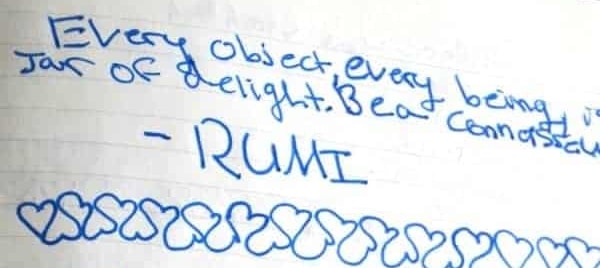 Every object, every being, is
Jar of delight. Be a connoisseu
- RUMI